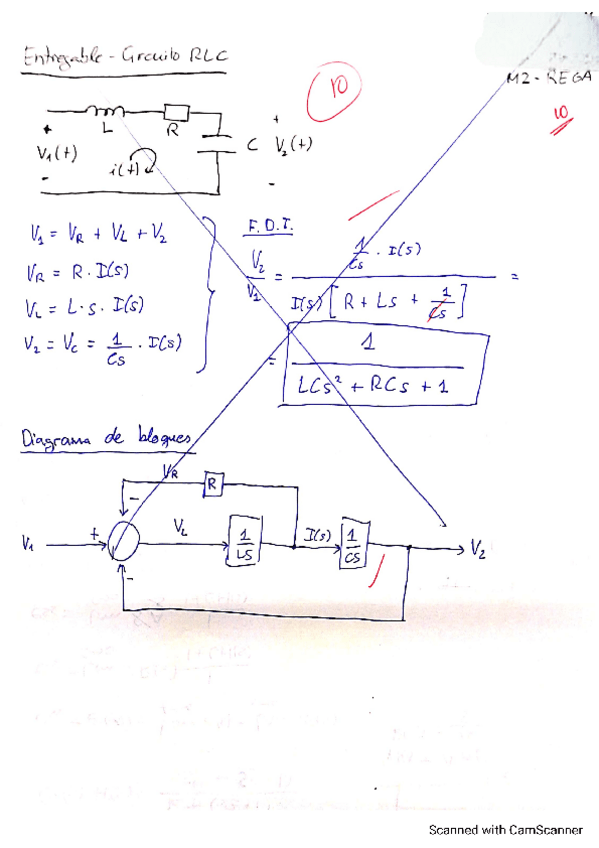 Entregable - Circuito RLC
M2 - REGA
10
10
L
R
C
+
V1(t)
-
i(t)
+
V2(t)
-
V1 = VR + VL + V2
VR = R · I(s)
VL = L · s · I(s)
V2 = Vc = 1/Cs · I(s)
F.D.T.
V2/V1 = (1/Cs · I(s)) / (I(s) [R + Ls + 1/Cs]) =
= 1 / (LCs² + RCs + 1)
Diagrama de bloques
VR
R
-
V1
+
VL
1/LS
I(s)
1/CS
V2
-
Scanned with CamScanner